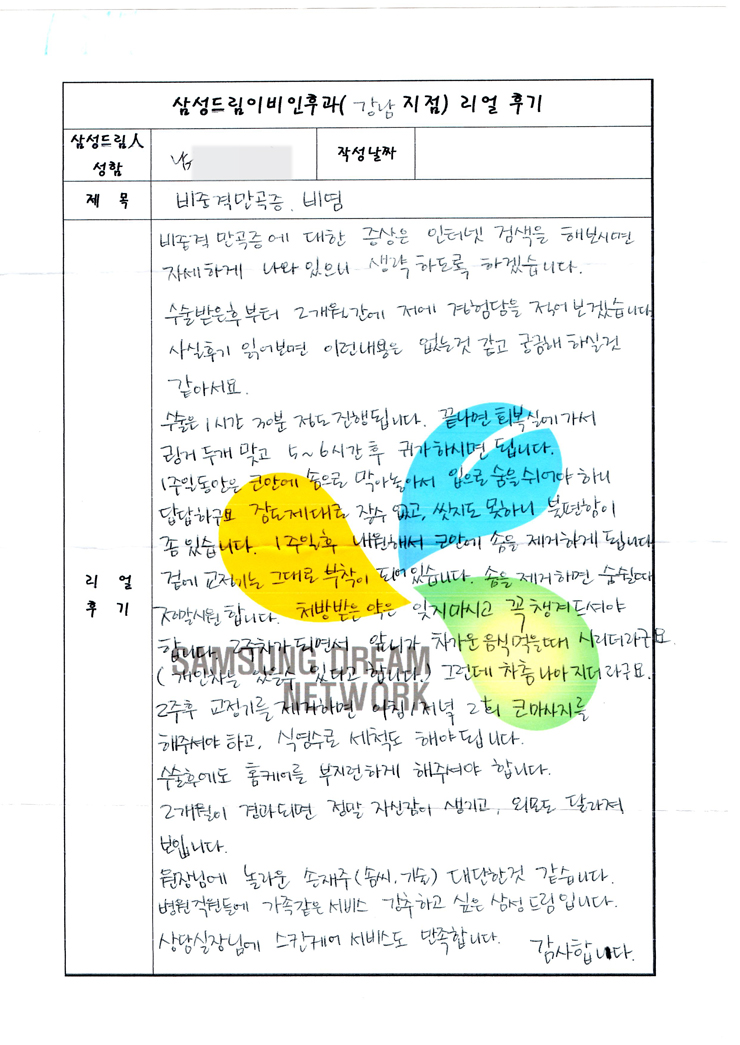 삼성드림이비인후과( 강남 지점) 리얼 후기
삼성드림人
성함
작성날짜
제 목
비중격만곡증. 비염
비중격 만곡증에 대한 증상은 인터넷 검색을 해보시면
자세하게 나와있으니 생략하도록 하겠습니다.
수술받은후부터 2개월간에 저에 경험담을 적어보겠습니다
사실후기 읽어보면 이런내용은 없는것 같고 궁금해 하실것
같아서요.
수술은 1시간 30분 정도 진행됩니다. 끝나면 회복실에가서
링거 두개 맞고 5~6시간 후 귀가하시면 됩니다.
1주일동안은 코안에 솜으로 막아놓아서 입으로 숨을 쉬어야 하니
답답하구요 잠도제대로 잘수 없고, 씻지도 못하니 불편함이
좀 있습니다. 1주일후 내원해서 코안에 솜을 제거하게 됩니다
겉에 교정기는 그대로 부착이 되어있습니다. 솜을 제거하면 숨쉴때
정말시원 합니다. 처방받은 약은 잊지마시고 꼭 챙겨드셔야
합니다. 2주차가 되면서 앞니가 차가운 음식먹을때 시리더라구요.
(개인차는 있을수 있다고 합니다.) 그런데 차츰 나아지더라구요.
SAMSUNG DREAM
NETWORK
2주후 교정기를 제거하면 아침/저녁 2회 코마사지를
해주셔야 하고, 식염수로 세척도 해야됩니다.
리 얼
후 기
수술후에도 홈케어를 부지런하게 해주셔야 합니다.
2개월이 경과되면 정말 자신감이 생기고, 외모도 달라져
보입니다.
원장님에 놀라운 손재주(솜씨, 기술) 대단한것 같습니다.
병원직원들에 가족같은 서비스 강추하고 싶은 삼성드림입니다.
상담실장님에 스킨케어 서비스도 만족합니다. 감사합니다.